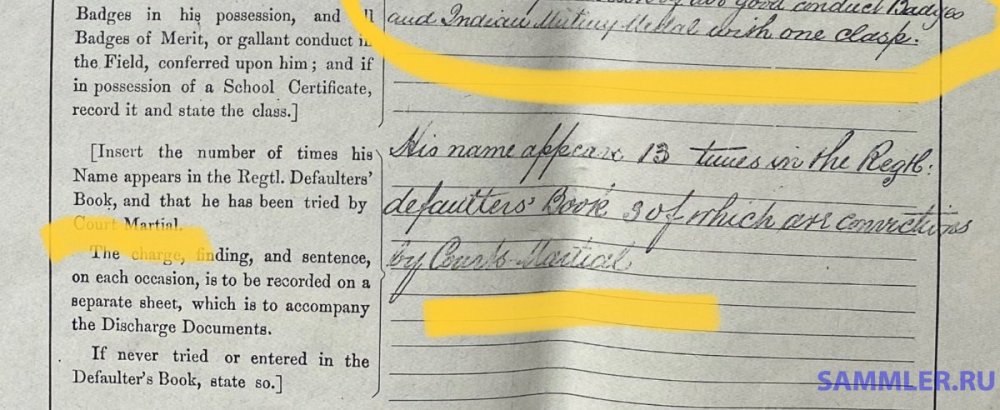 Badges in his possession, and all
Badges of Merit, or gallant conduct in
the Field, conferred upon him; and if
in possession of a School Certificate,
record it and state the class.]
good conduct Badges
and Indian Mutiny Medal with one clasp.
[Insert the number of times his
Name appears in the Regtl. Defaulters'
Book, and that he has been tried by
Court Martial.
The charge, finding, and sentence,
on each occasion, is to be recorded on a
separate sheet, which is to accompany
the Discharge Documents.
If never tried or entered in the
Defaulter's Book, state so.]
His name appears 13 times in the Regtl:
defaulters' Book 3 of which are convictions
by Courts-Martial
SAMMLER.RU